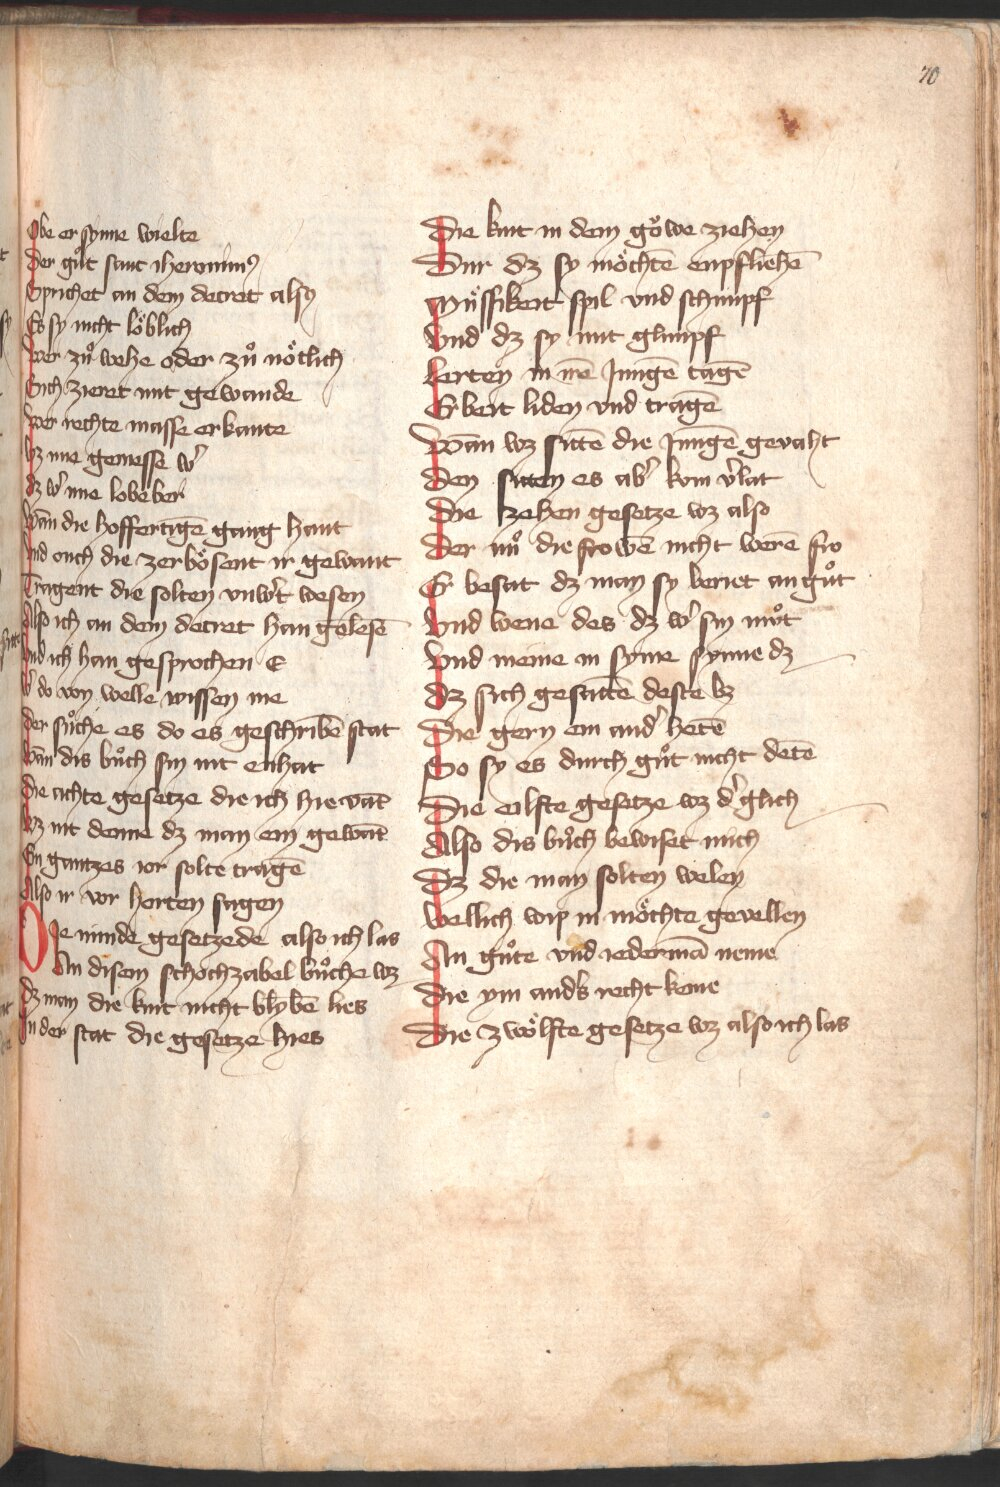 70
Obe er synne wielte
Der guͦt sant iheronimꝰ
Sprichet an dem decret also
Es sy nicht loͤblich
Wer zuͦ wehe oder zuͦ noͤtlich
Sich zieret mit gewande
Wer rechte masse erkante
Dz nie gemesse wͬ
Dz wͬ nie lobeber
Wan̄ die hoffertigē gang hant
Vnd ouch die zerboͤsent ir gewant
Tragent die solten vnwͬt wesen
Also ich an dem decret han gelesē
Vnd ich han gesprochen E
Wͬ do von welle wissen me
Der suͦche es do es geschribē stat
Wan̄ dis buͦch sin nit enhat
Die achte gesetze die ich hie vāt
Wz nit denne dz man ein gewāt
Ein gantzes ior solte tragē
Also ir vor herten sagen
Die núnde gesetzede also ich las
An disem schochzabel buͦche wz
Dz man die kint nicht blybē lies
In der stat die gesetze hies
Die kint in dem goͤwe ziehen
Dur dz sy moͤchtē enpfliehē
Muͤssikeit spil vnd schimpf
Vnd dz sy mit glimpf
Lerten in irē jungē tagē
Erbeit liden vnd tragē
Wan̄ wz sittē die jungē gevaht
Den sitten es abͬ kom vͬlat
Die zehen gesetze wz also
Der nuͦ die frowē nicht were fro
Er besat dz man sy beriet an guͦt
Vnd wene des dz wͬ sin muͦt
Vnd meine in syme synne dz
Dz sich gesattē deste bz
Die gern ein andͬ hetē
So sy es durch guͦt nicht detē
Die eilfte gesetze wz dͬ glich
Also dis buͦch bewiset mich
Dz die man solten welen
Wellich wip in moͤchte gevellen
An guͦte vnd iedermā neme
Die ym andͬs recht keme
Die zwoͤlfte gesetze wz also ich las